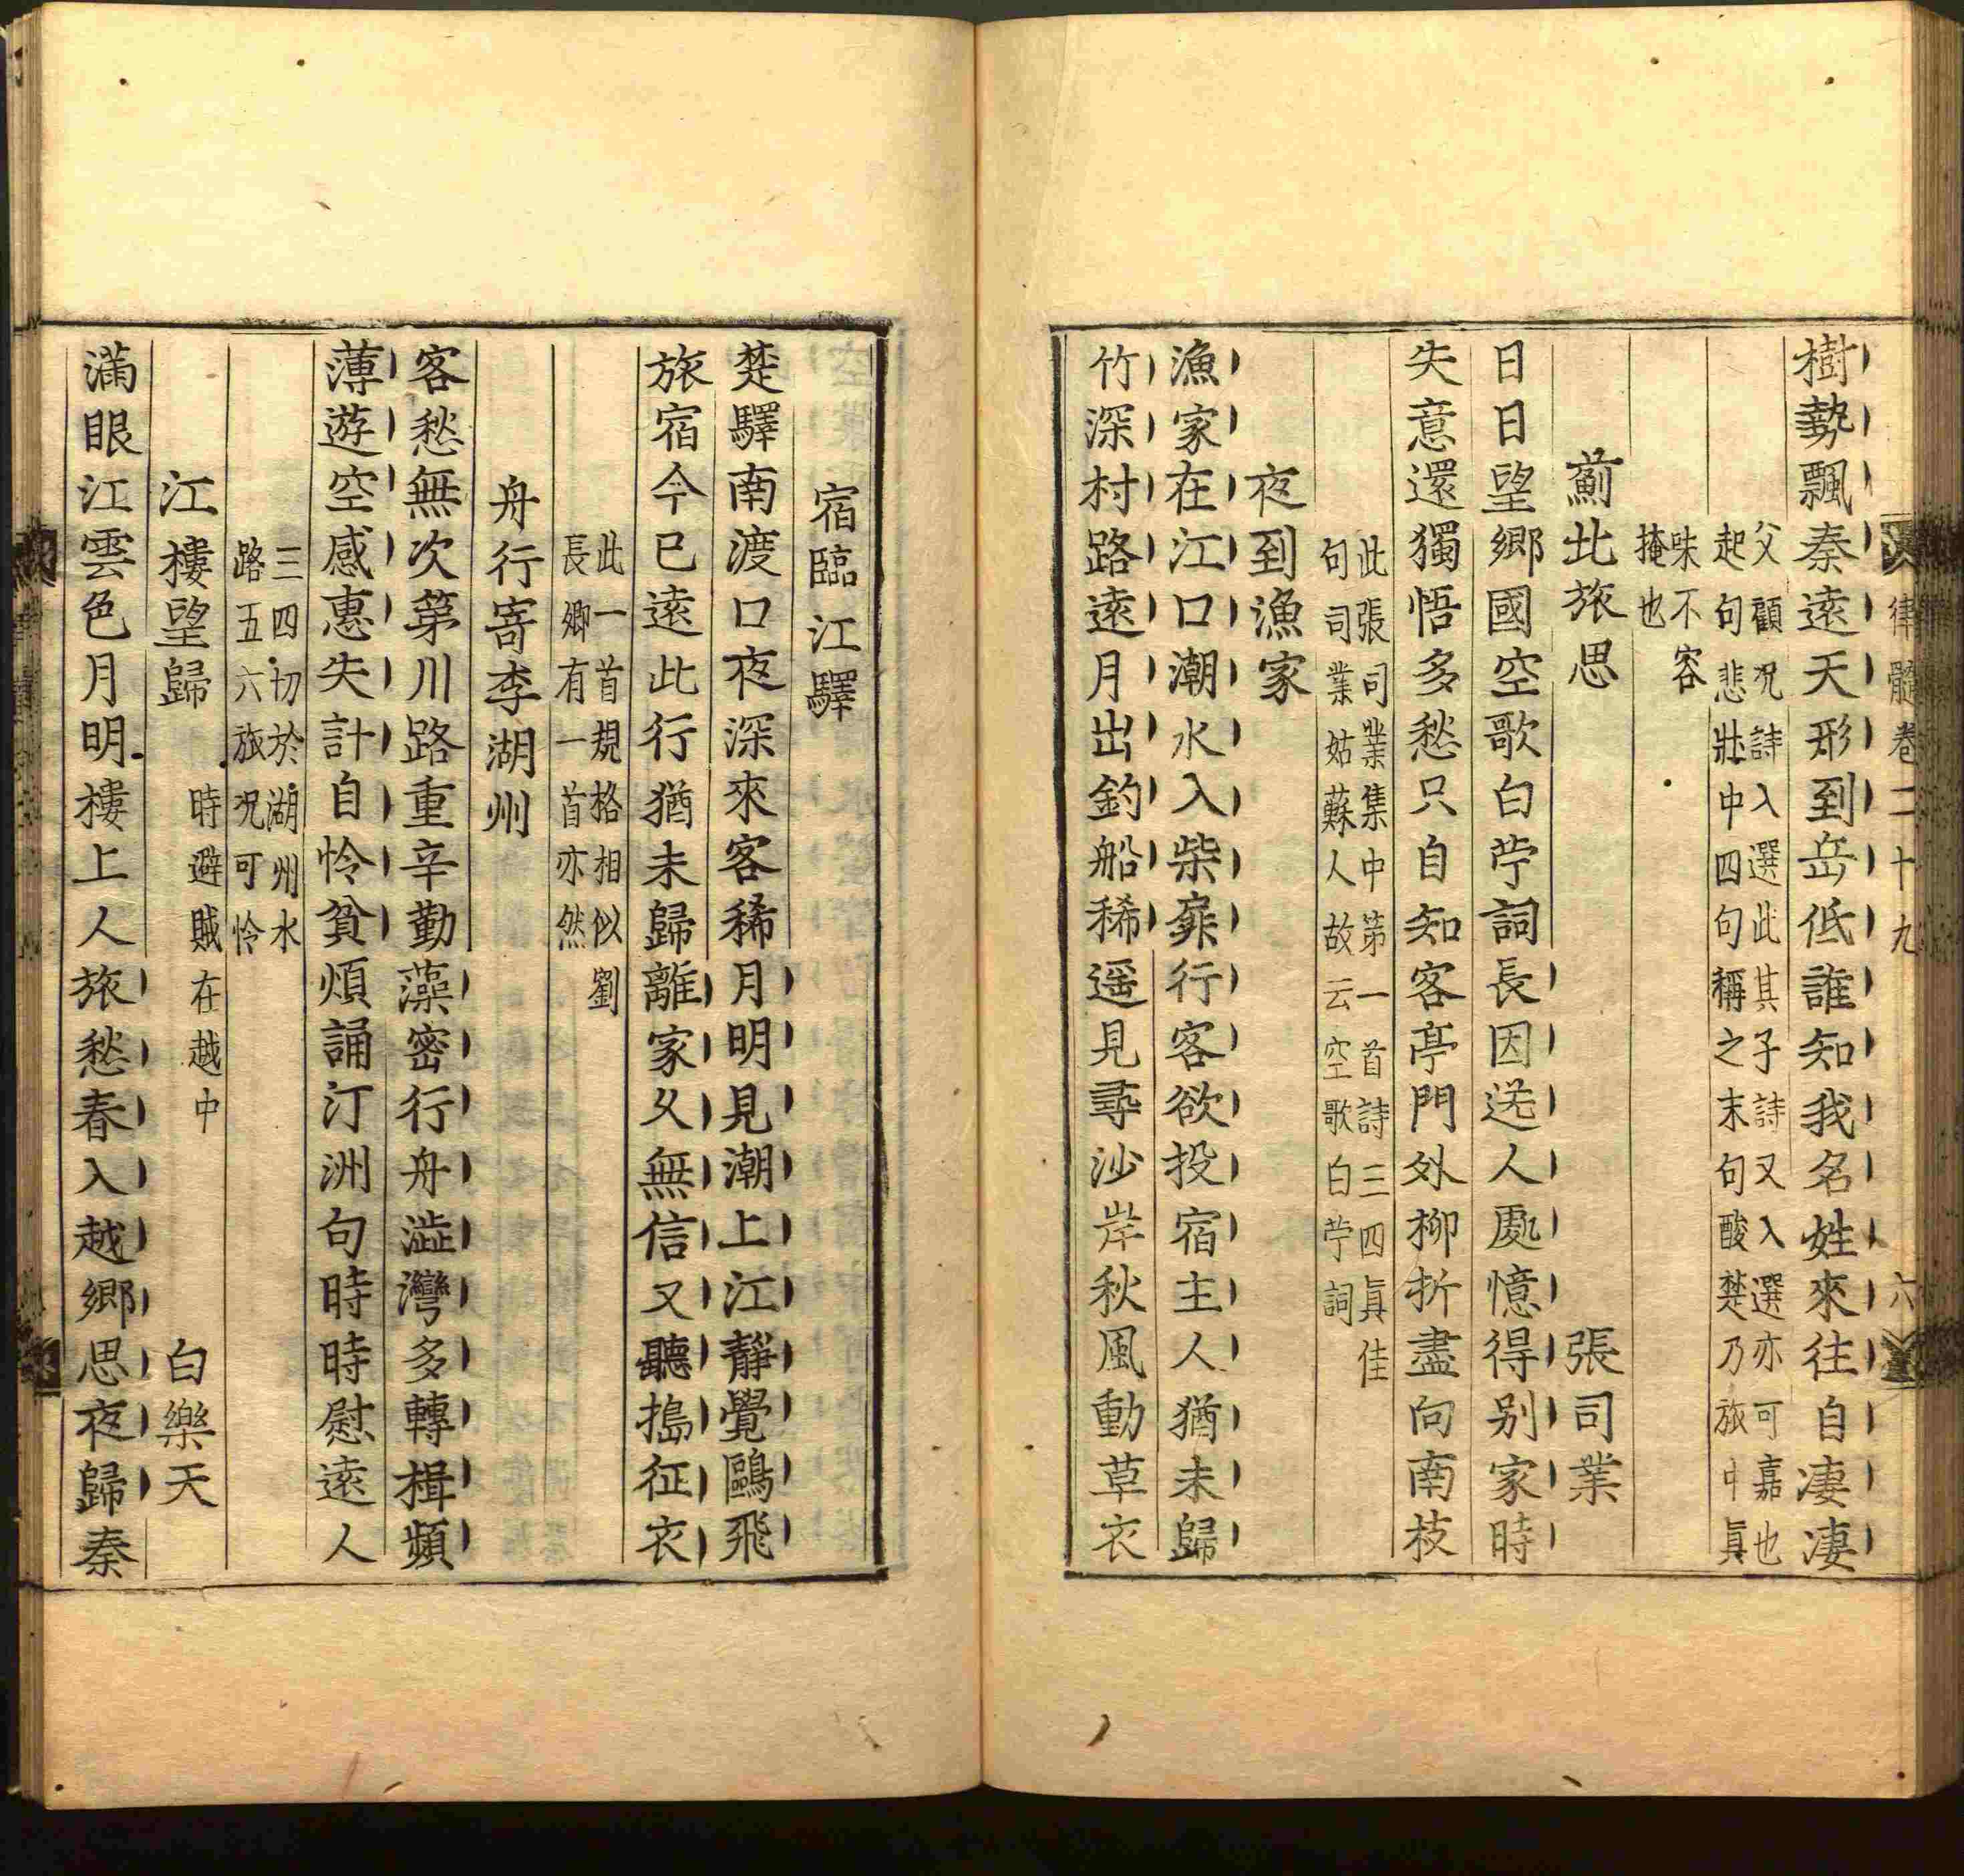 律髓卷二十九 六
樹勢飄秦遠天形到岳低誰知我名姓來往自凄凄
父顧况詩入選此其子詩又入選亦可嘉也
起句悲壯中四句稱之末句酸楚乃旅中眞
味不容
掩也
薊北旅思 張司業
日日望鄉國空歌白苧詞長因送人處憶得别家時
失意還獨悟多愁只自知客亭門外柳折盡向南枝
此張司業集中第一首詩三四眞佳
句司業姑蘇人故云空歌白苧詞
夜到漁家
漁家在江口潮水入柴扉行客欲投宿主人猶未歸
竹深村路遠月出釣船稀遥見尋沙岸秋風動草衣
宿臨江驛
楚驛南渡口夜深來客稀月明見潮上江靜覺鷗飛
旅宿今已遠此行猶未歸離家久無信又聽搗征衣
此一首規格相似劉
長卿有一首亦然
舟行寄李湖州
客愁無次第川路重辛勤藻密行舟澁灣多轉楫頻
薄遊空感惠失計自怜貧煩誦汀洲句時時慰遠人
三四切於湖州水
路五六旅况可怜
江樓望歸 時避賊在越中 白樂天
滿眼江雲色月明樓上人旅愁春入越鄉思夜歸秦